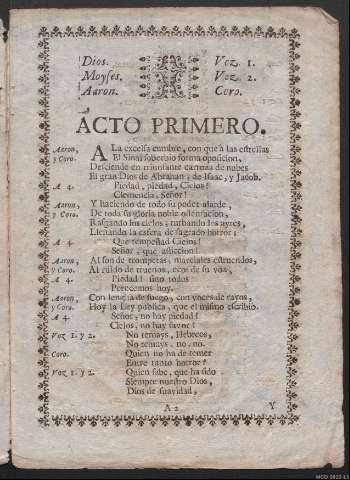 Dios. Voz. 1.
Moyses. Voz. 2.
Aaron. Coro.
ACTO PRIMERO.
Aaron, A La excelsa cumbre, con que à las estrellas
y Coro. El Sinai soberaio forma oposicion,
Desciende en triunfante carroza de nubes
El gran Dios de Abrahan, de Isaac, y Jacob.
A 4. Piedad, piedad, Cielos!
Clemencia, Señor!
Aaron, Y haciendo de todo su poder alarde,
y Coro. De toda su gloria noble ostentacion,
Rasgando los cielos, turbando los ayres,
Llenando la esfera de sagrado horror;
A 4. Que tempestad Cielos!
Señor, què afliccion!
Aaron, Al son de trompetas, marciales estruendos,
y Coro. Al ruido de truenos, ecos de su voz,
A 4. Piedad! sino todos
Perecemos hoy.
Aaron, Con lengua de fuego, con voces de rayos,
y Coro. Hoy la Ley publica, que el mismo escribiò.
A 4. Señor, no hay piedad!
Cielos, no hay favor!
Voz 1. y 2. No temays, Hebreos,
No temays, no, no.
Coro. Quien no ha de temer
Entre tanto horror?
Voz 1. y 2. Quien sabe, que ha sido
Siempre nuestro Dios,
Dios de suavidad,
A 2 Y
MCD 2022 L5